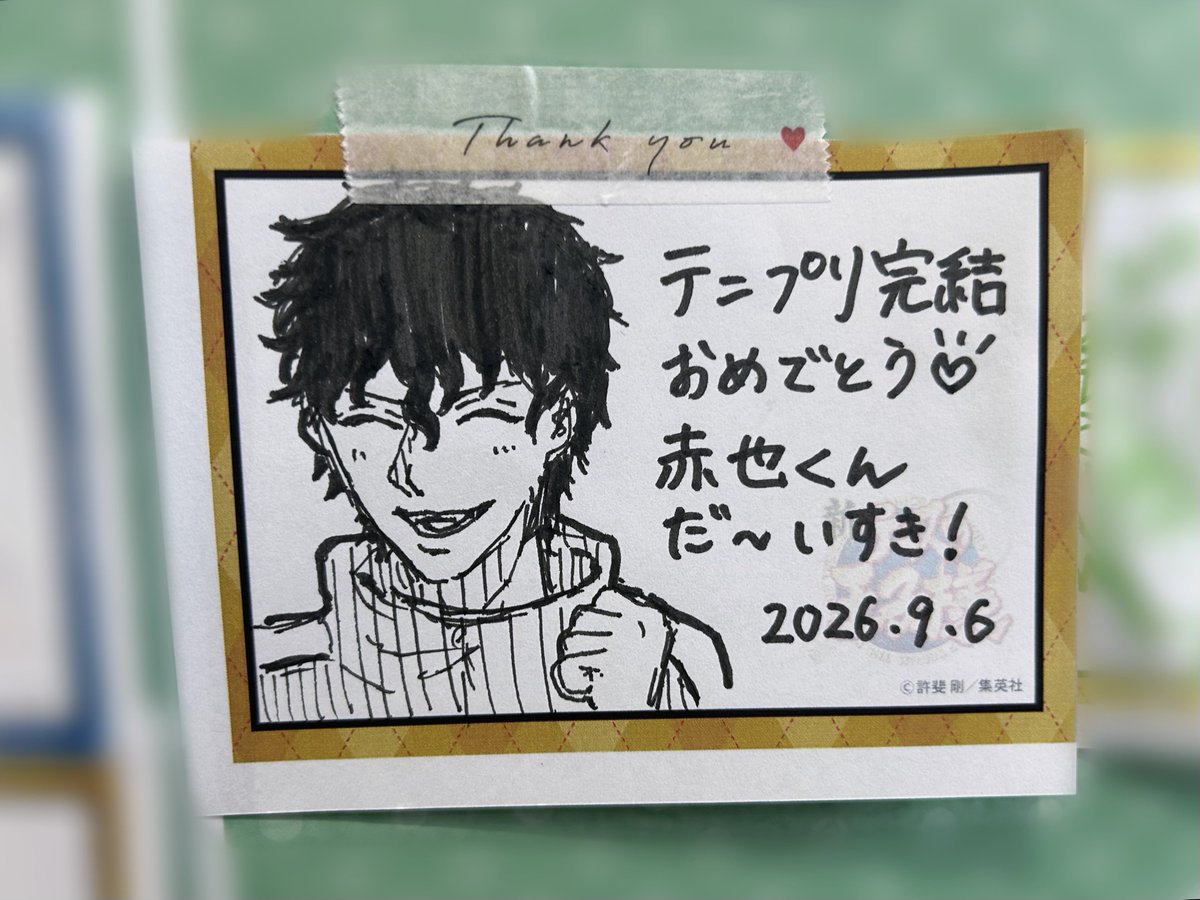 Thank you
テニプリ完結
おめでとう
赤也くん
だ〜いすき!
2026.9.6
©許斐 剛／集英社